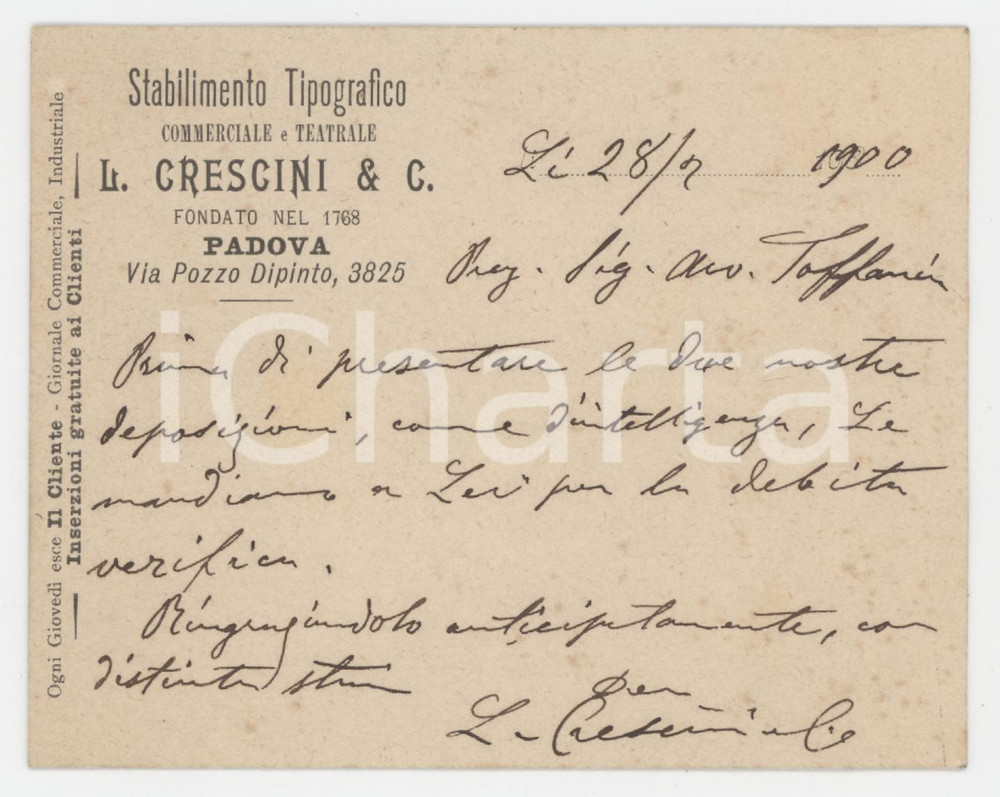 Stabilimento Tipografico
COMMERCIALE e TEATRALE
L. CRESCINI & C.
FONDATO NEL 1768
PADOVA
Via Pozzo Dipinto, 3825
Ogni Giovedì esce Il Cliente - Giornale Commerciale, Industriale
Inserzioni gratuite ai Clienti
Li 28/7 1900
Preg. Sig. Avv. Toffanin
Prima di presentare le due nostre
deposizioni, come d'intelligenza, Le
mandiamo a Lei per la debita
verifica.
Ringraziandolo anticipatamente, con
distinta stima
per
L. Crescini e C.
iCharta